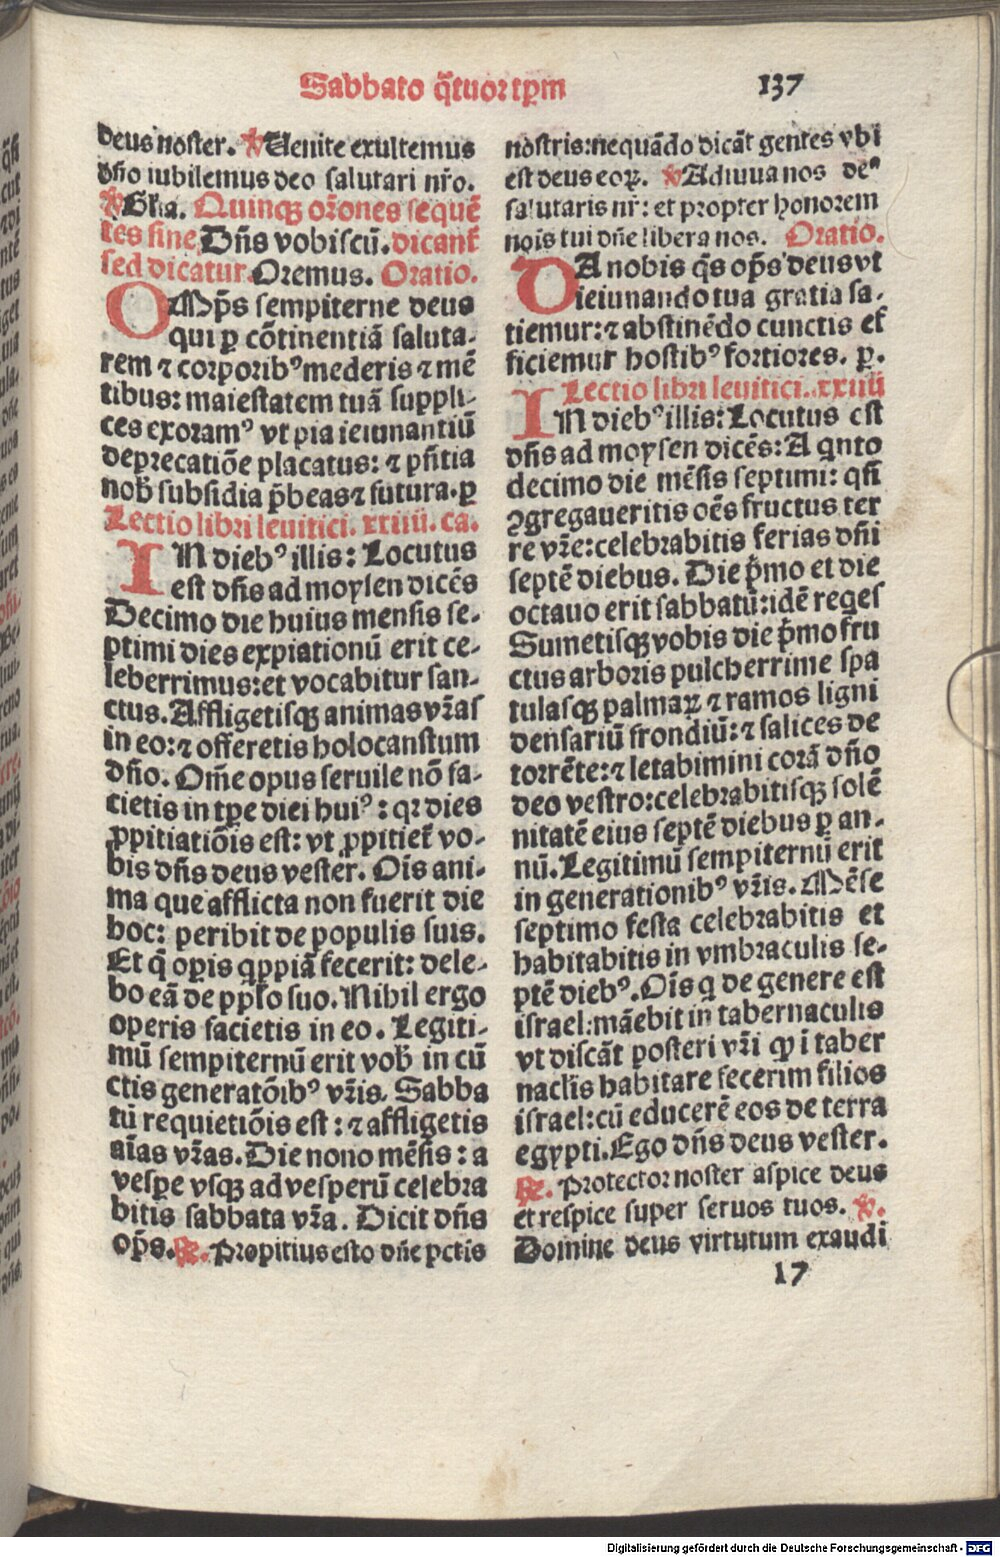 Sabbato q̃tuor tꝑm 137
deus noster. ℣ Uenite exultemus
dn̄o iubilemus deo salutari nr̄o.
℣ Gl'ia. Quinqꝫ or̄ones sequē
tes sine Dn̄s vobiscū. dicant̄
sed dicatur. Oremus. Oratio.
OMp̄s sempiterne deus
qui ꝑ cōtinentiā saluta-
rem ⁊ corporibꝰ mederis ⁊ mē
tibus: maiestatem tuā suppli-
ces exoramꝰ vt pia ieiunantiū
deprecatiōe placatus: ⁊ pn̄tia
nob̄ subsidia p̄beas ⁊ futura. ꝑ
Lectio libri leuitici. xxiiii. ca.
IN diebꝰ illis: Locutus
est dn̄s ad moysen dicēs
Decimo die huius mensis se-
ptimi dies expiationū erit ce-
leberrimus: et vocabitur san-
ctus. Affligetisqꝫ animas vr̄as
in eo: ⁊ offeretis holocanstum
dn̄o. Om̄e opus seruile nō fa-
cietis in tꝑe diei huiꝰ: qꝛ dies
ꝓpitiatiōis est: vt ꝓpitiet̄ vo-
bis dn̄s deus vester. Oīs ani-
ma que afflicta non fuerit die
hoc: peribit de populis suis.
Et q̄ oꝑis qꝓpiā fecerit: dele-
bo eā de ppl'o suo. Nihil ergo
operis facietis in eo. Legiti-
mū sempiternū erit vob̄ in cū
ctis generatōibꝰ vr̄is. Sabba
tū requietiōis est: ⁊ affligetis
aīas vr̄as. Die nono mēsis: a
vesꝑe vsqꝫ ad vesperū celebra
bitis sabbata vr̄a. Dicit dn̄s
op̄s. ℟. Propitius esto dn̄e pctis
nostris: nequādo dicāt gentes vbi
est deus eoꝝ. ℣ Adiuua nos deꝰ
salutaris nr̄: et propter honorem
nois tui dn̄e libera nos. Oratio.
DA nobis q̄s op̄s deus vt
ieiunando tua gratia sa-
tiemur: ⁊ abstinēdo cunctis ef
ficiemur hostibꝰ fortiores. ꝑ.
Lectio libri leuitici. xxiiii
IN diebꝰ illis: Locutus est
dn̄s ad moysen dicēs: A qnto
decimo die mēsis septimi: qn̄
ꝯgregaueritis oēs fructus ter
re vr̄e: celebrabitis ferias dn̄i
septē diebus. Die p̄mo et die
octauo erit sabbatū: idē reges
Sumetisqꝫ vobis die p̄mo fru
ctus arboris pulcherrime spa
tulasqꝫ palmaꝝ ⁊ ramos ligni
densariū frondiū: ⁊ salices de
torrēte: ⁊ letabimini corā dn̄o
deo vestro: celebrabitisqꝫ solē
nitatē eius septē diebus ꝑ an-
nū. Legitimū sempiternū erit
in generationibꝰ vr̄is. Mēse
septimo festa celebrabitis et
habitabitis in vmbraculis se-
ptē diebꝰ. Oīs q de genere est
israel: māebit in tabernaculis
vt discāt posteri vr̄i qp̄ ī taber
naclīs habitare fecerim filios
israel: cū educerē eos de terra
egypti. Ego dn̄s deus vester.
℟. Protector noster aspice deus
et respice super seruos tuos. ℣.
Domine deus virtutum exaudi
17
Digitalisierung gefördert durch die Deutsche Forschungsgemeinschaft - DFG